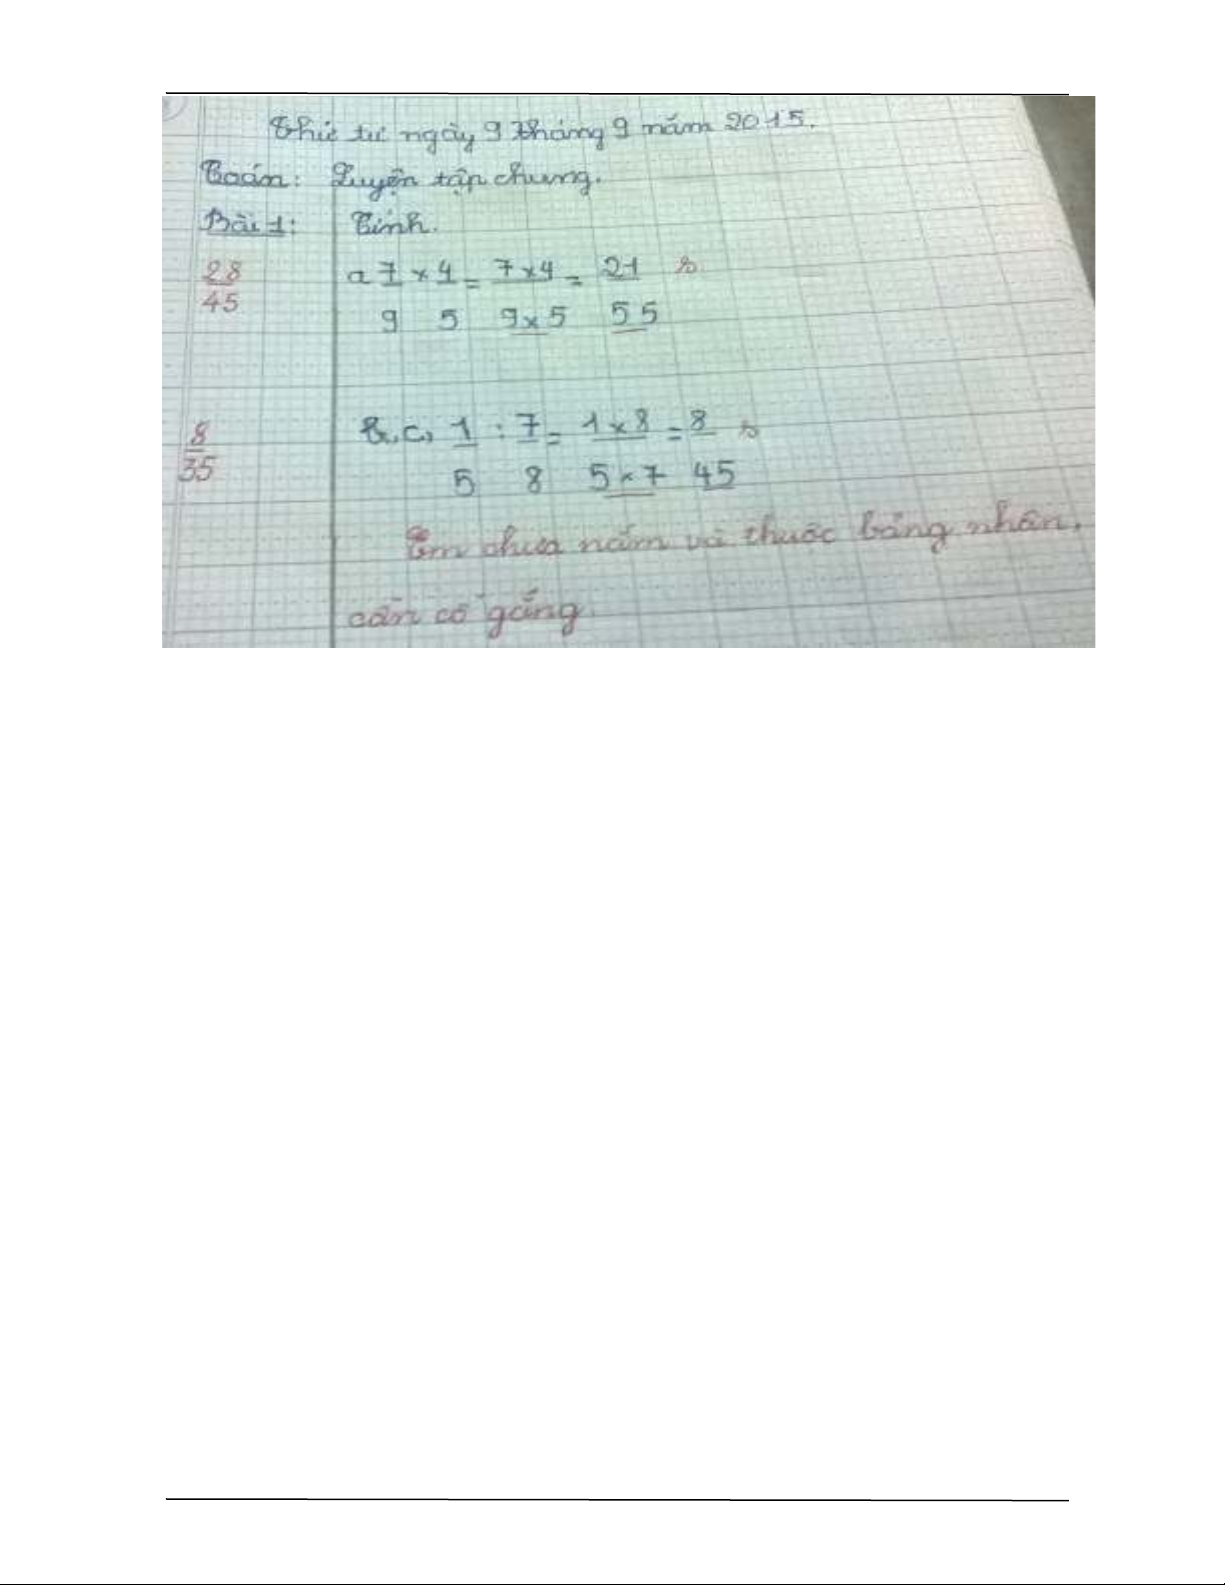 Thứ tư ngày 9 tháng 9 năm 2015.
Toán: Luyện tập chung.
Bài 1: Tính.
28 a 7 × 4 = 7 × 4 = 21 s
45 9 5 9 × 5 55
8 b, c, 1 : 7 = 1 × 8 = 8 s
35 5 8 5 × 7 45
Em chưa nắm và thuộc bảng nhân,
cần cố gắng.